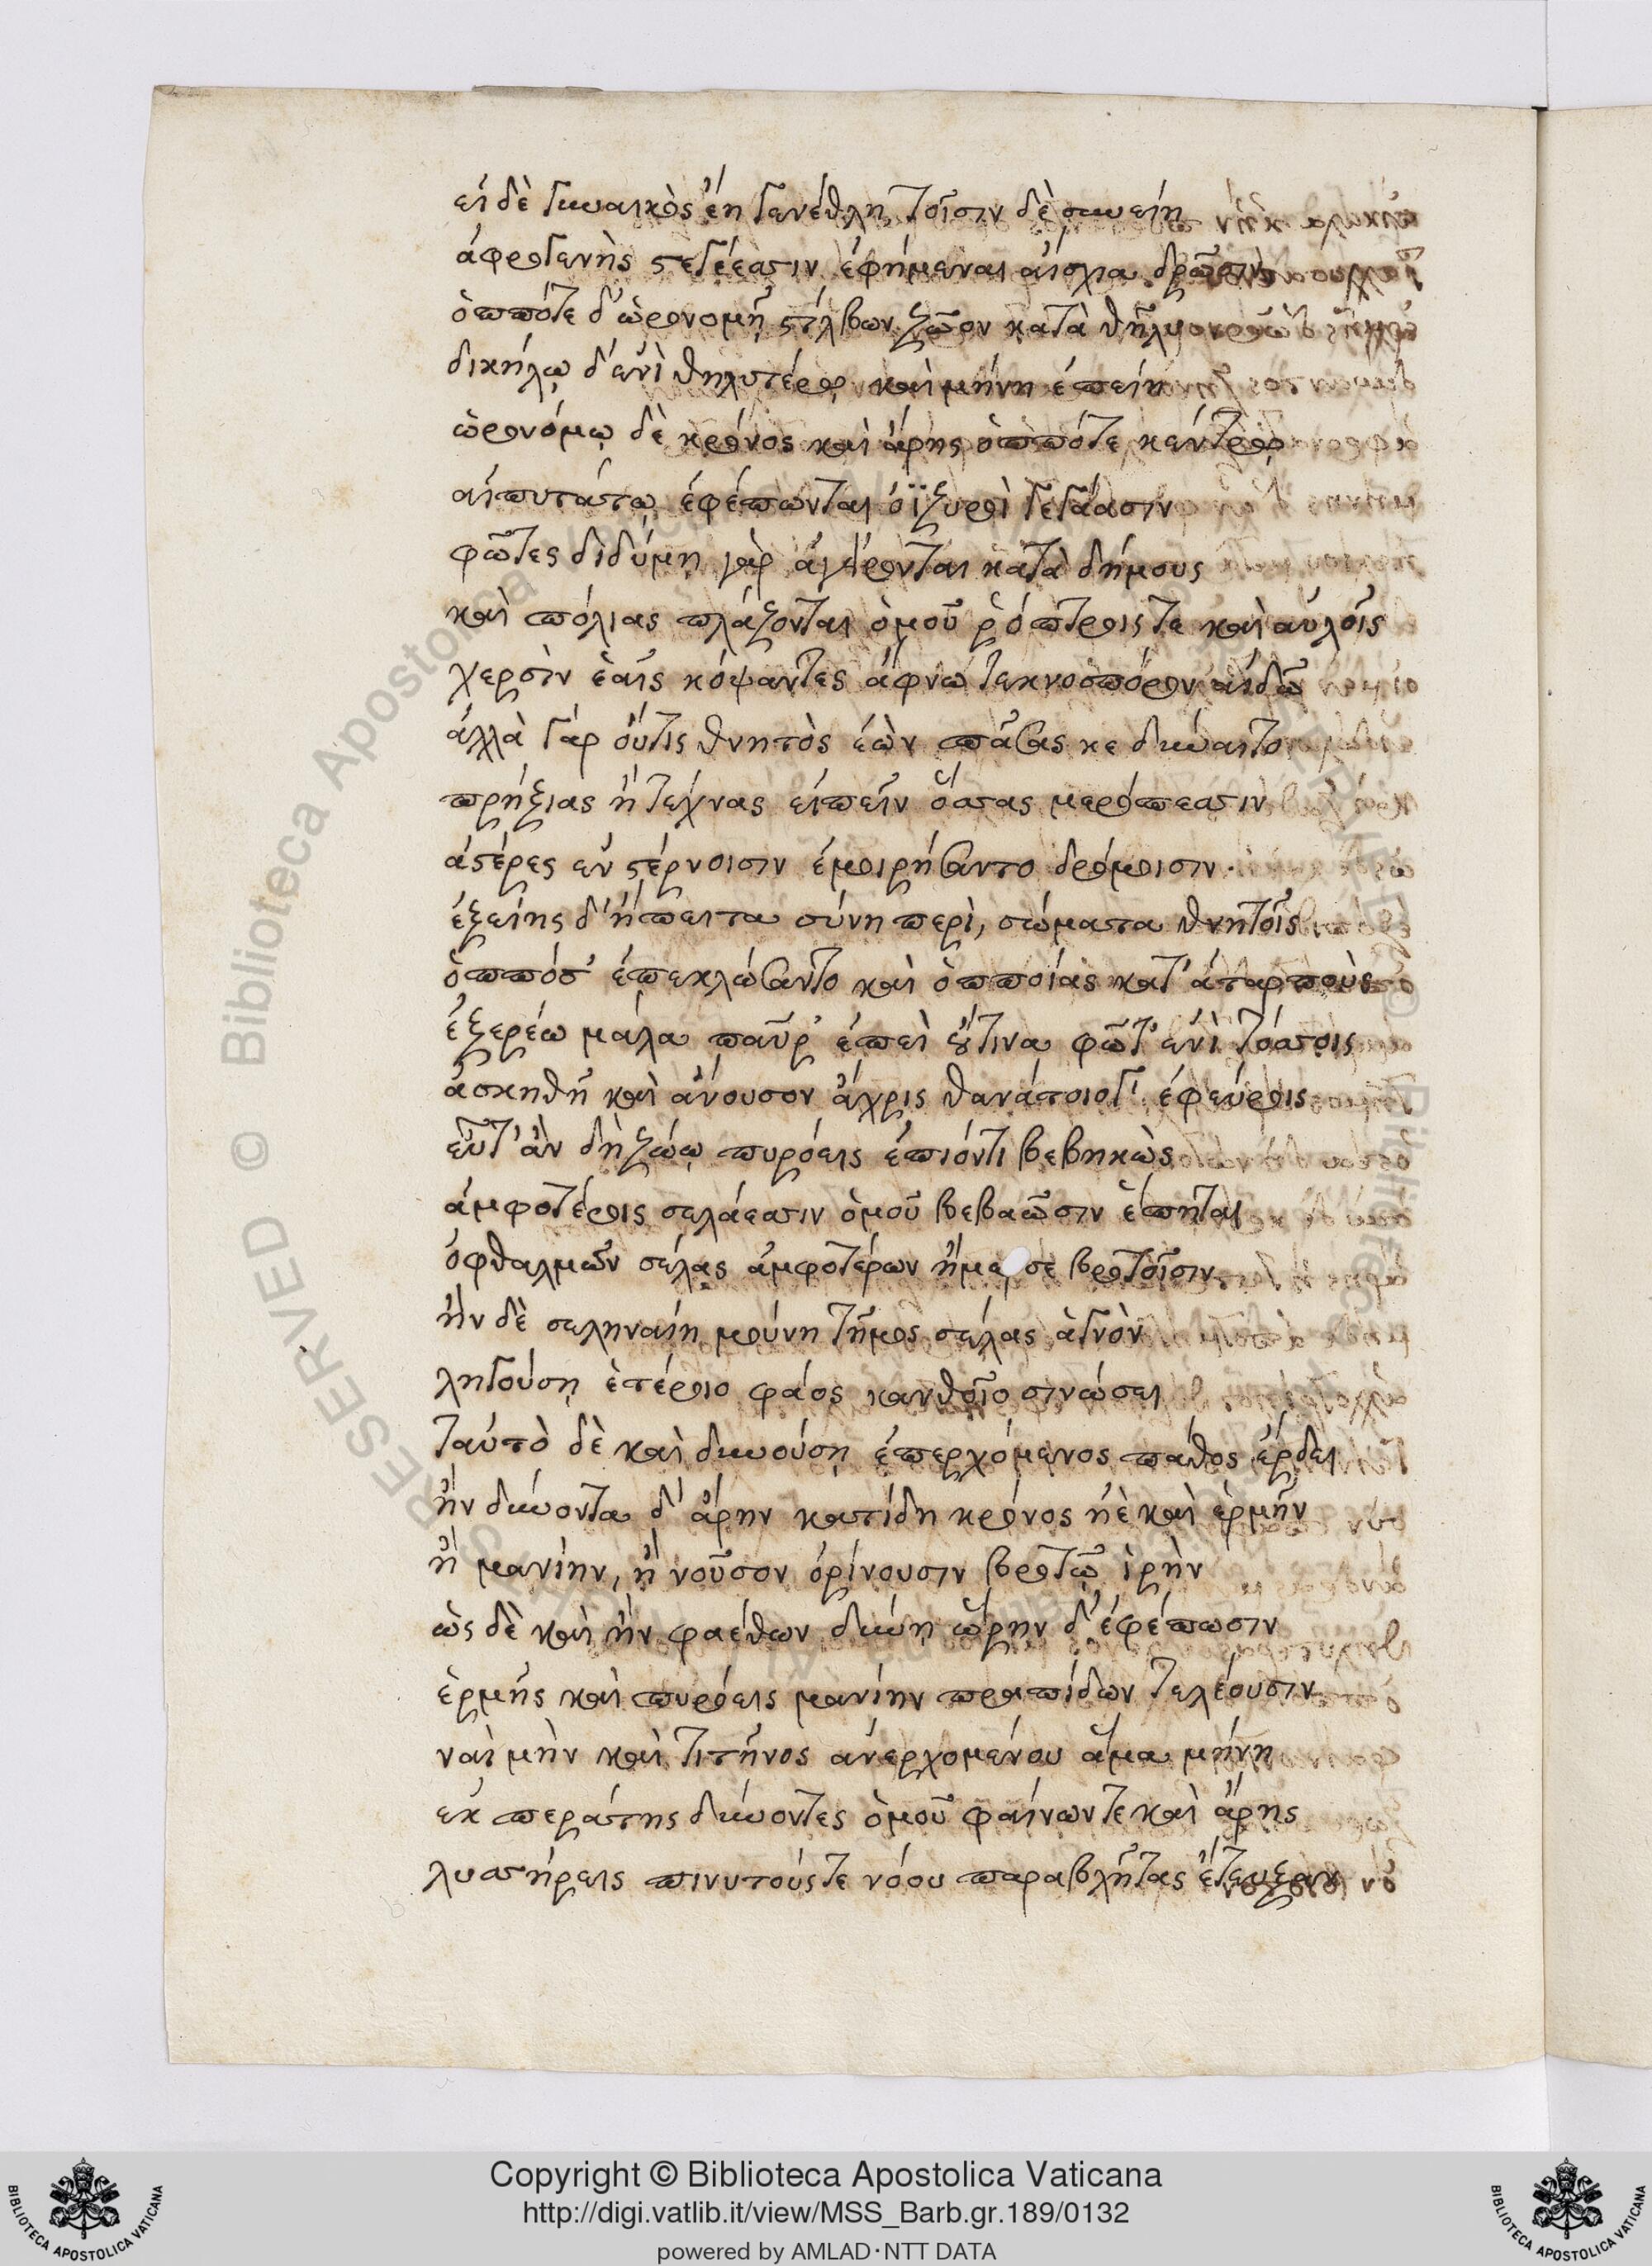 εἰ δὲ γυναικὸς ἔη γενέθλη τοῖσιν δὲ συνείη
ἀφρογενὴς στεγέεσσιν ἐφήμεναι αἴσχια δρῶσιν
ὁππότε δ' ὡρονομῇ στίλβων ζῶον κατὰ θῆλυ
δικήλῳ δ' ἐνὶ θηλυτέρῳ καὶ μήνη ἐπείη
ὡρονόμῳ δὲ κρόνος καὶ ἄρης ὁππότε κέντρῳ
αἰπυτάτῳ ἐφέπωνται ὀϊζυροὶ γεγάασιν
φῶτες διδύμῃ γὰρ ἀγείρονται κατὰ δήμους
καὶ πόλιας πλάζονται ὁμοῦ ῥόπτροις τε καὶ αὐλοῖς
χερσὶν ἑαῖς κόψαντες ἄφνω τεκνοσπόρον αἰδῶ
ἀλλὰ γὰρ οὔτις θνητὸς ἐὼν πάσας κε δύναιτο
πρήξιας ἢ τέχνας εἰπεῖν ὅσσας μερόπεσσιν
ἀστέρες ἐν στέρνοισιν ἐμοιρήσαντο δρόμοισιν.
ἑξείης δ' ἤπειτα σύνη περὶ, σώματα θνητοῖς
ὁππόσ' ἐπεκλώσαντο καὶ ὁπποίας κατ' ἀταρποὺς
ἐξερέω μάλα παῦρ' ἐπεὶ οὔτινα φῶτ' ἐνὶ τόσσοις
ἀσκηθῆ καὶ ἄνουσον ἄχρις θανάτοιό γ' ἐφεύροις
εὖτ' ἂν δὴ ζώῳ πυρόεις ἐπιόντι βεβηκὼς
ἀμφοτέροις σελάεσσιν ὁμοῦ βεβαῶσιν ἕπηται
ὀφθαλμῶν σέλας ἀμφοτέρων ἤμερσε βροτοῖσιν
ἢν δὲ σεληναίη μούνη τῆμος σέλας ἁγνὸν
ληγούσῃ ἑτέροιο φάος κανθοῖο σινώσει
ταὐτὸ δὲ καὶ δυνούσῃ ἐπερχόμενος πάθος ἔρδει
ἢν δύνοντα δ' ἄρην κατίδῃ κρόνος ἠὲ καὶ ἑρμῆν
ἢ μανίην, ἢ νοῦσον ὀρίνουσιν βροτῷ ἱρὴν
ὣς δὲ καὶ ἢν φαέθων δύνῃ ὥρην δ' ἐφέπωσιν
ἑρμῆς καὶ πυρόεις μανίην πραπίδων τελέουσιν
ναὶ μὴν καὶ τιτῆνος ἀνερχομένου ἅμα μήνῃ
ἐκ περάτης δύνοντες ὁμοῦ φαίνων τε καὶ ἄρης
λυσσήρεις πινυτούς τε νόου παραβλῆτας ἔτευξαν